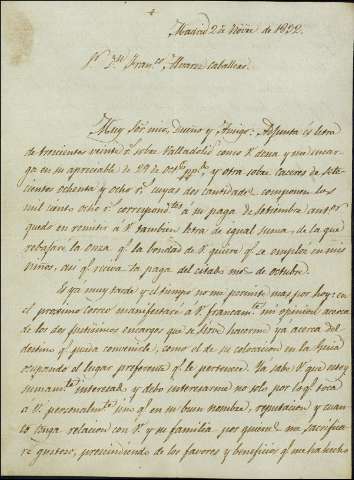 Madrid 2 de Novre de 1822.
Sr Dn Franco Alvarez Caballero.
Muy Sor mio, Dueño y Amigo: Adjunta es letra
de trescientos veinte r sobre Valladolid como V desea y me encar
ga en su apreciable de 29 de Octe pp.do y otra sobre Caceres de sete
cientos ochenta y ocho r cuyas dos cantidades componen los
mil ciento ocho r correspondtes á su paga de Setiembre anteor
quedo en remitir á V tambien letra de igual suma, de la que
rebajaré la onza qe la bondad de V quiere qe se emplee en mis
niños, asi qe reciva la paga del citado mes de octubre.
Es ya muy tarde y el tiempo no me permite mas por hoy: en
el proximo correo manifestaré á V francamte mi opinion acerca
de los dos encargos que se sirve hacerme ya acerca del
destino qe pueda convenirle, como el de su colocacion en la Guia
ocupando el lugar preferente qe le pertenece. Ya sabe V que estoy
sumamte interesado y debo interesarme no solo por lo qe toca
á V personalmte sino qe en su buen nombre, reputacion y cuan
to tenga relacion con V y su familia por quienes me sacrifica
ré gustoso, prescindiendo de los favores y beneficios qe me ha hecho